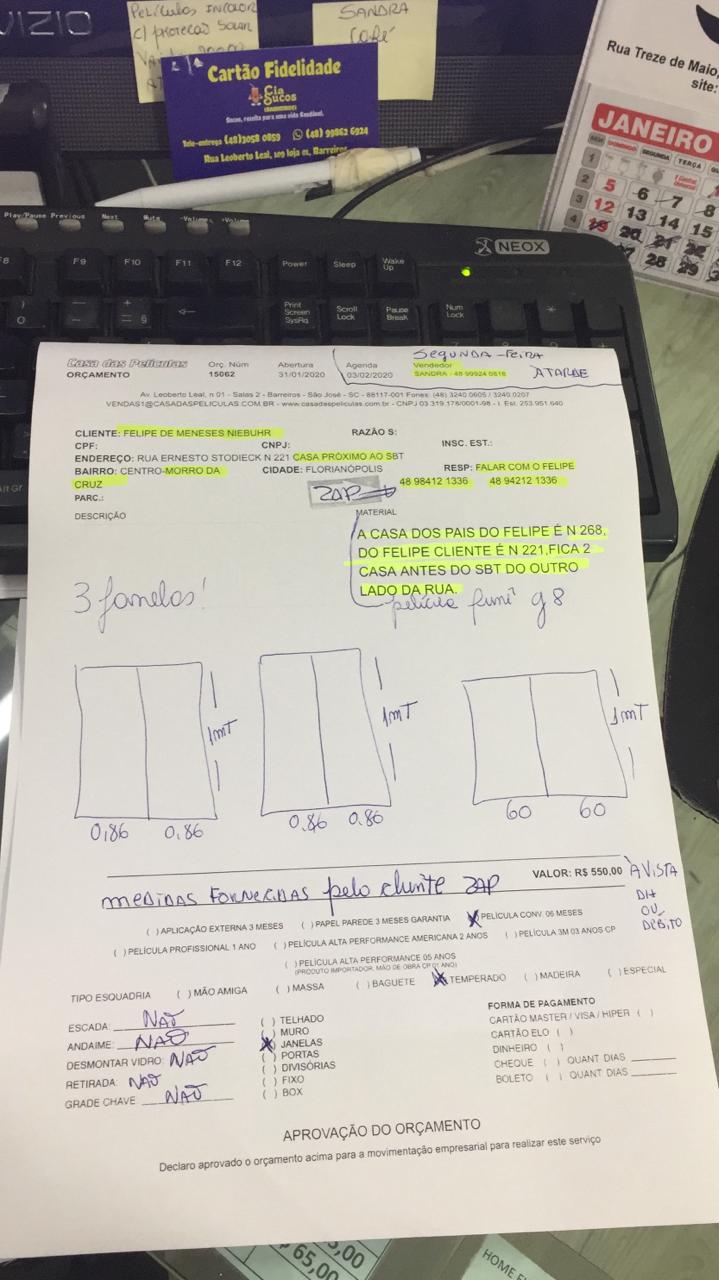 VIZIO
Películas INCOLOR
C/ PROTEÇÃO SOLAR
SANDRA
CAFÉ
Cartão Fidelidade
Cia
Sucos
Sucos, receita para uma vida Saudável.
Tele-entrega (48)3058 0859 (48) 99862 6924
Rua Leoberto Leal, 109 loja 01, Barreiros
Rua Treze de Maio,
site:
JANEIRO
DOMINGO SEGUNDA TERÇA
1
2 5 6 7 8
3 12 13 14 15
4 19 20 21 22
27 28 29
Play/Pause Previous Next Mute -Volume +Volume
NEOX
F8 F9 F10 F11 F12 Power Sleep Wake Up
Print Screen SysRq Scroll Lock Pause Break Num Lock
Alt Gr
SEGUNDA-FEIRA
A TARDE
Casa das Películas Orç. Núm Abertura Agenda Vendedor
ORÇAMENTO 15062 31/01/2020 03/02/2020 SANDRA - 48 99924 0618
Av. Leoberto Leal, n 01 - Salas 2 - Barreiros - São José - SC - 88117-001 Fones: (48) 3240.0605 / 3240.0207
VENDAS1@CASADASPELICULAS.COM.BR - www.casadaspeliculas.com.br - CNPJ 03.319.178/0001-98 - I. Est. 253.951.640
CLIENTE: FELIPE DE MENESES NIEBUHR RAZÃO S:
CPF: CNPJ: INSC. EST.:
ENDEREÇO: RUA ERNESTO STODIECK N 221 CASA PRÓXIMO AO SBT
BAIRRO: CENTRO-MORRO DA CRUZ CIDADE: FLORIANÓPOLIS RESP: FALAR COM O FELIPE
48 98412 1336 48 94212 1336
ZAP
PARC.:
DESCRIÇÃO MATERIAL
A CASA DOS PAIS DO FELIPE É N 268,
DO FELIPE CLIENTE É N 221,FICA 2
CASA ANTES DO SBT DO OUTRO
LADO DA RUA.
película fumê g8
3 janelas!
1MT 1MT 1MT
0,86 0,86 0,86 0.86 60 60
VALOR: R$ 550,00 À VISTA
DH
OU
DÉBITO
MEDIDAS FORNECIDAS pelo cliente ZAP
( ) APLICAÇÃO EXTERNA 3 MESES ( ) PAPEL PAREDE 3 MESES GARANTIA (X) PELÍCULA CONV. 06 MESES
( ) PELÍCULA PROFISSIONAL 1 ANO ( ) PELÍCULA ALTA PERFORMANCE AMERICANA 2 ANOS ( ) PELÍCULA 3M 03 ANOS CP
( ) PELÍCULA ALTA PERFORMANCE 05 ANOS
(PRODUTO IMPORTADOR, MÃO DE OBRA CP 01 ANO)
TIPO ESQUADRIA ( ) MÃO AMIGA ( ) MASSA ( ) BAGUETE (X) TEMPERADO ( ) MADEIRA ( ) ESPECIAL
ESCADA: NÃO
ANDAIME: NÃO
DESMONTAR VIDRO: NÃO
RETIRADA: NÃO
GRADE CHAVE: NÃO
( ) TELHADO
( ) MURO
(X) JANELAS
( ) PORTAS
( ) DIVISÓRIAS
( ) FIXO
( ) BOX
FORMA DE PAGAMENTO
CARTÃO MASTER / VISA / HIPER ( )
CARTÃO ELO ( )
DINHEIRO ( )
CHEQUE ( ) QUANT DIAS
BOLETO ( ) QUANT DIAS
APROVAÇÃO DO ORÇAMENTO
Declaro aprovado o orçamento acima para a movimentação empresarial para realizar este serviço
65,00
HOME